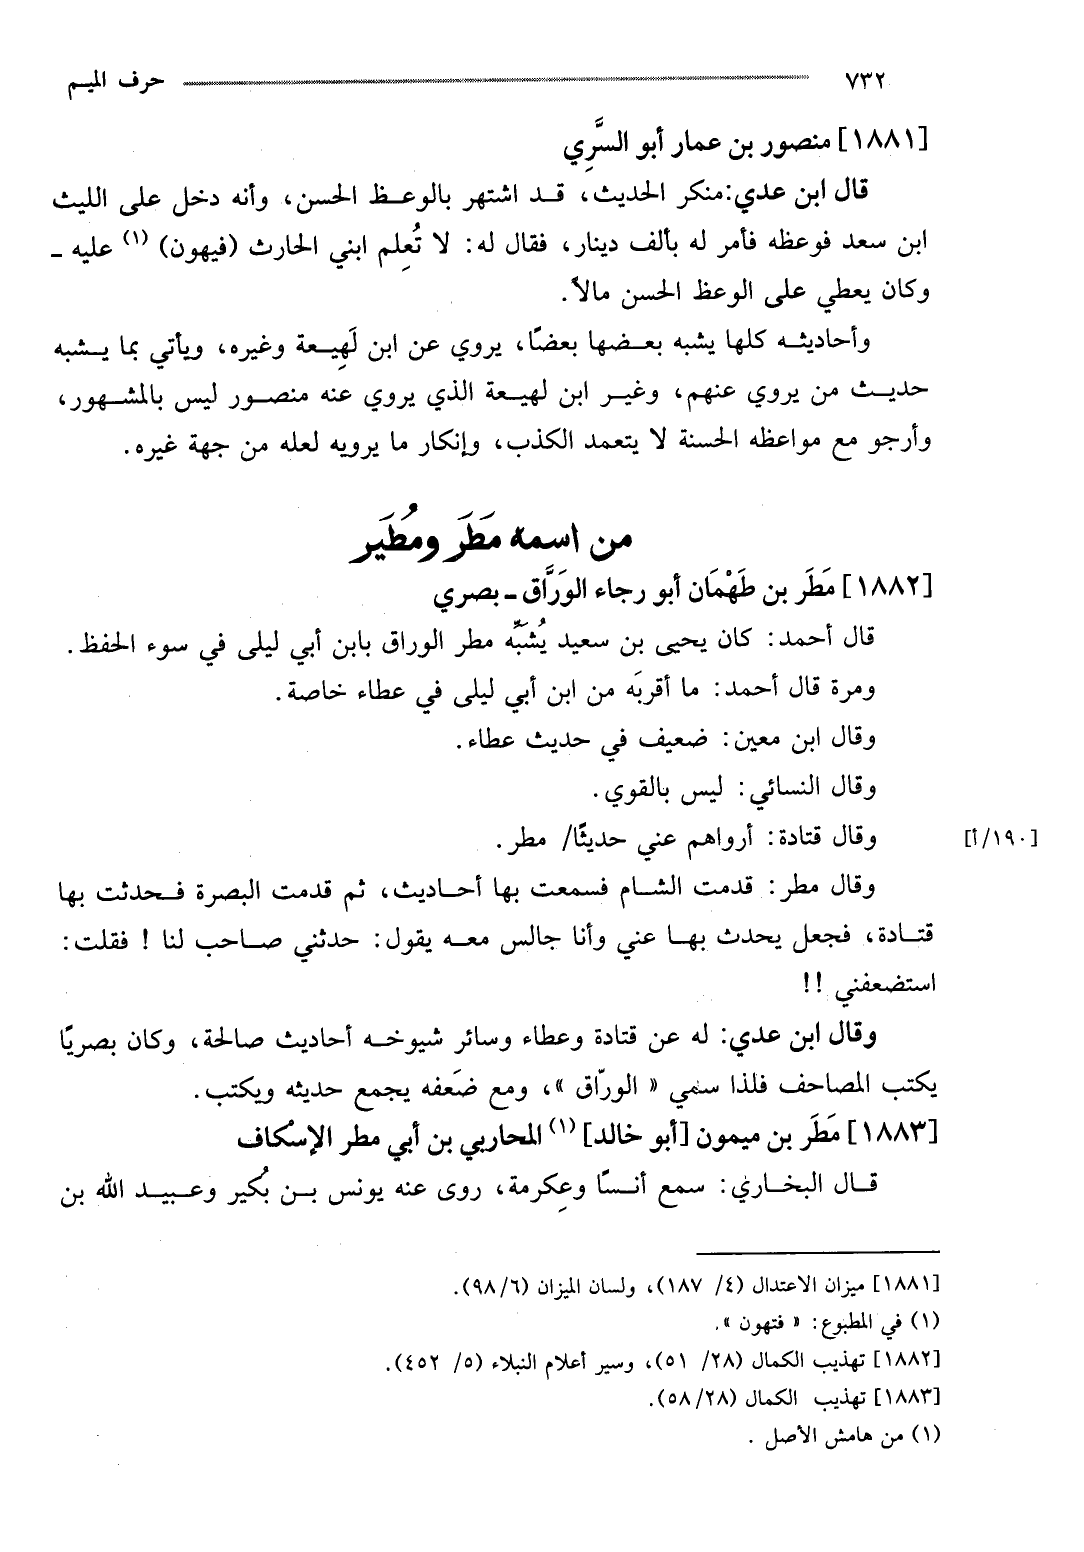 ٧٣٢ حرف الميم
[١٨٨١] منصور بن عمار أبو السَّرِي
قال ابن عدي: منكر الحديث، قد اشتهر بالوعظ الحسن، وأنه دخل على الليث
ابن سعد فوعظه فأمر له بألف دينار، فقال له: لا تُعلِم ابني الحارث (فيهون) (١) عليه ـ
وكان يعطي على الوعظ الحسن مالاً.
وأحاديثه كلها يشبه بعضها بعضًا، يروي عن ابن لَهِيعة وغيره، ويأتي بما يشبه
حديث من يروي عنهم، وغير ابن لهيعة الذي يروي عنه منصور ليس بالمشهور،
وأرجو مع مواعظه الحسنة لا يتعمد الكذب، وإنكار ما يرويه لعله من جهة غيره.
من اسمه مَطَر ومُطَير
[١٨٨٢] مَطَر بن طَهْمَان أبو رجاء الوَرَّاق ـ بصري
قال أحمد: كان يحيى بن سعيد يُشَبِّه مطر الوراق بابن أبي ليلى في سوء الحفظ.
ومرة قال أحمد: ما أقربَه من ابن أبي ليلى في عطاء خاصة.
وقال ابن معين: ضعيف في حديث عطاء.
وقال النسائي: ليس بالقوي.
وقال قتادة: أرواهم عني حديثًا/ مطر. [١٩٠/أ]
وقال مطر: قدمت الشام فسمعت بها أحاديث، ثم قدمت البصرة فحدثت بها
قتادة، فجعل يحدث بها عني وأنا جالس معه يقول: حدثني صاحب لنا ! فقلت:
استضعفني !!
وقال ابن عدي: له عن قتادة وعطاء وسائر شيوخه أحاديث صالحة، وكان بصريًا
يكتب المصاحف فلذا سمي « الورّاق »، ومع ضَعفه يجمع حديثه ويكتب.
[١٨٨٣] مَطَر بن ميمون [أبو خالد] (١) المحاربي بن أبي مطر الإسْكاف
قال البخاري: سمع أنسًا وعِكرمة، روى عنه يونس بن بُكير وعبيد الله بن
[١٨٨١] ميزان الاعتدال (٤/ ١٨٧)، ولسان الميزان (٦/ ٩٨).
(١) في المطبوع: « فتهون ».
[١٨٨٢] تهذيب الكمال (٢٨/ ٥١)، وسير أعلام النبلاء (٥/ ٤٥٢).
[١٨٨٣] تهذيب الكمال (٢٨/ ٥٨).
(١) من هامش الأصل .